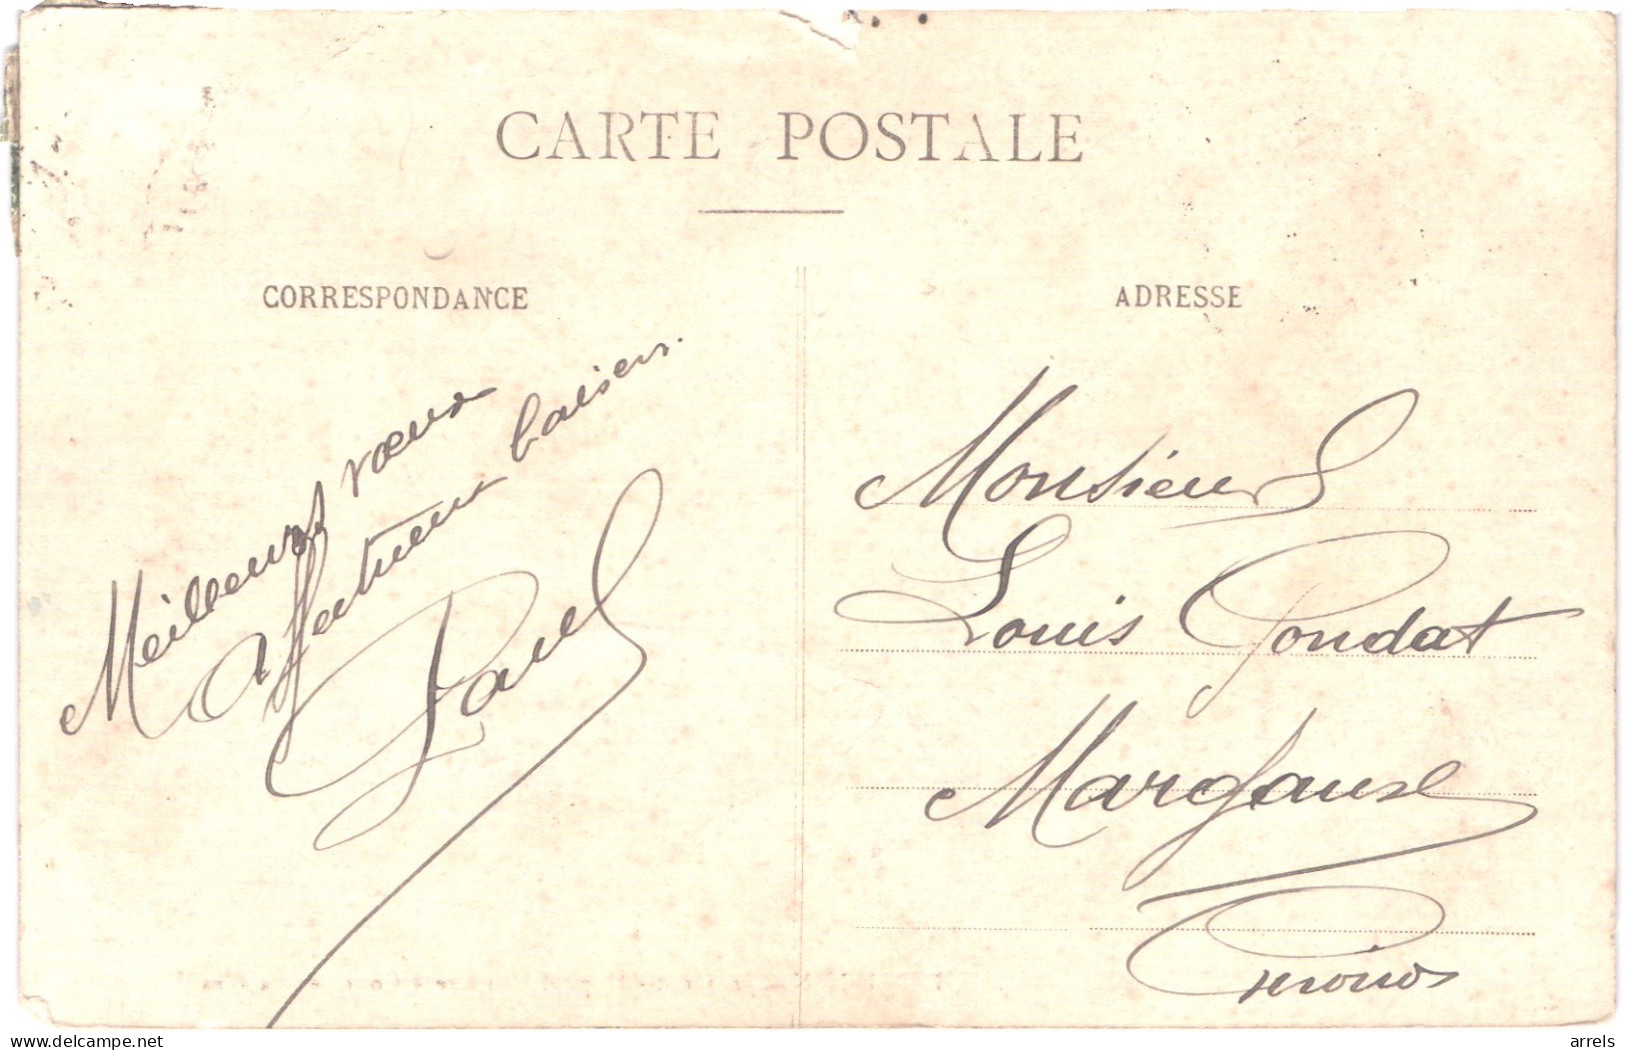 CARTE POSTALE
CORRESPONDANCE
Meilleurs vœux
Affectueux baisers.
Paul
ADRESSE
Monsieur
Louis Pondat
delcampe.net
arrels